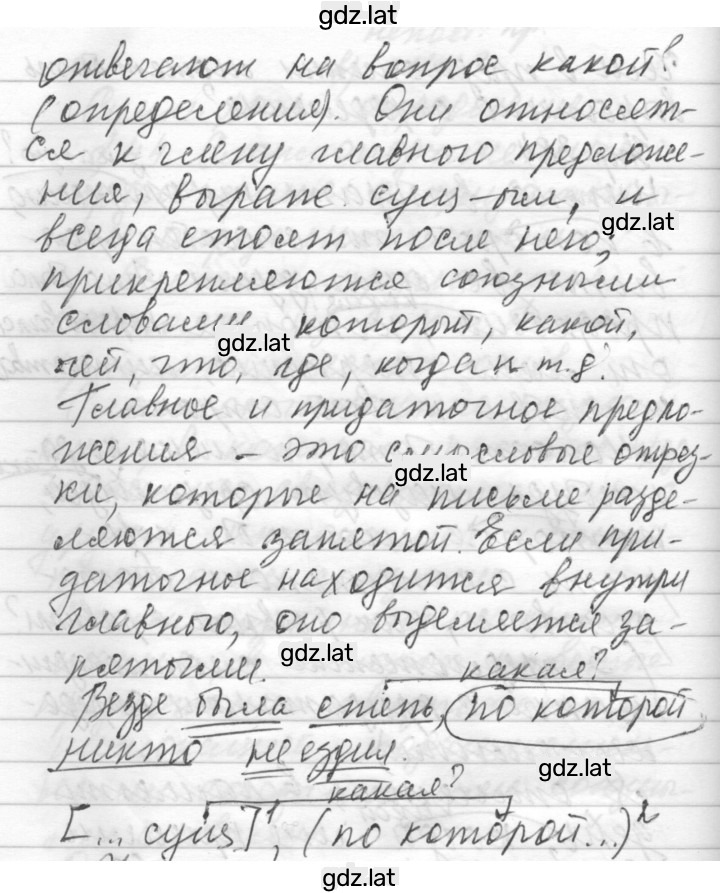 gdz.lat
отвечают на вопрос какой?
(определения). Они относят-
ся к члену главного предложе-
ния, выраж. сущ-ым, и
gdz.lat
всегда стоят после него;
прикрепляются союзными
словами который, какой,
gdz.lat
чей, что, где, когда и т.д.
Главное и придаточное предло-
жения - это смысловые отрез-
gdz.lat
ки, которые на письме разде-
ляются запятой. Если при-
даточное находится внутри
главного, оно выделяется за-
gdz.lat
пятыми.
какая?
Везде была степь, по которой
никто не ездил.
gdz.lat
какая?
[... сущ.]¹, (по которой...)²
gdz.lat